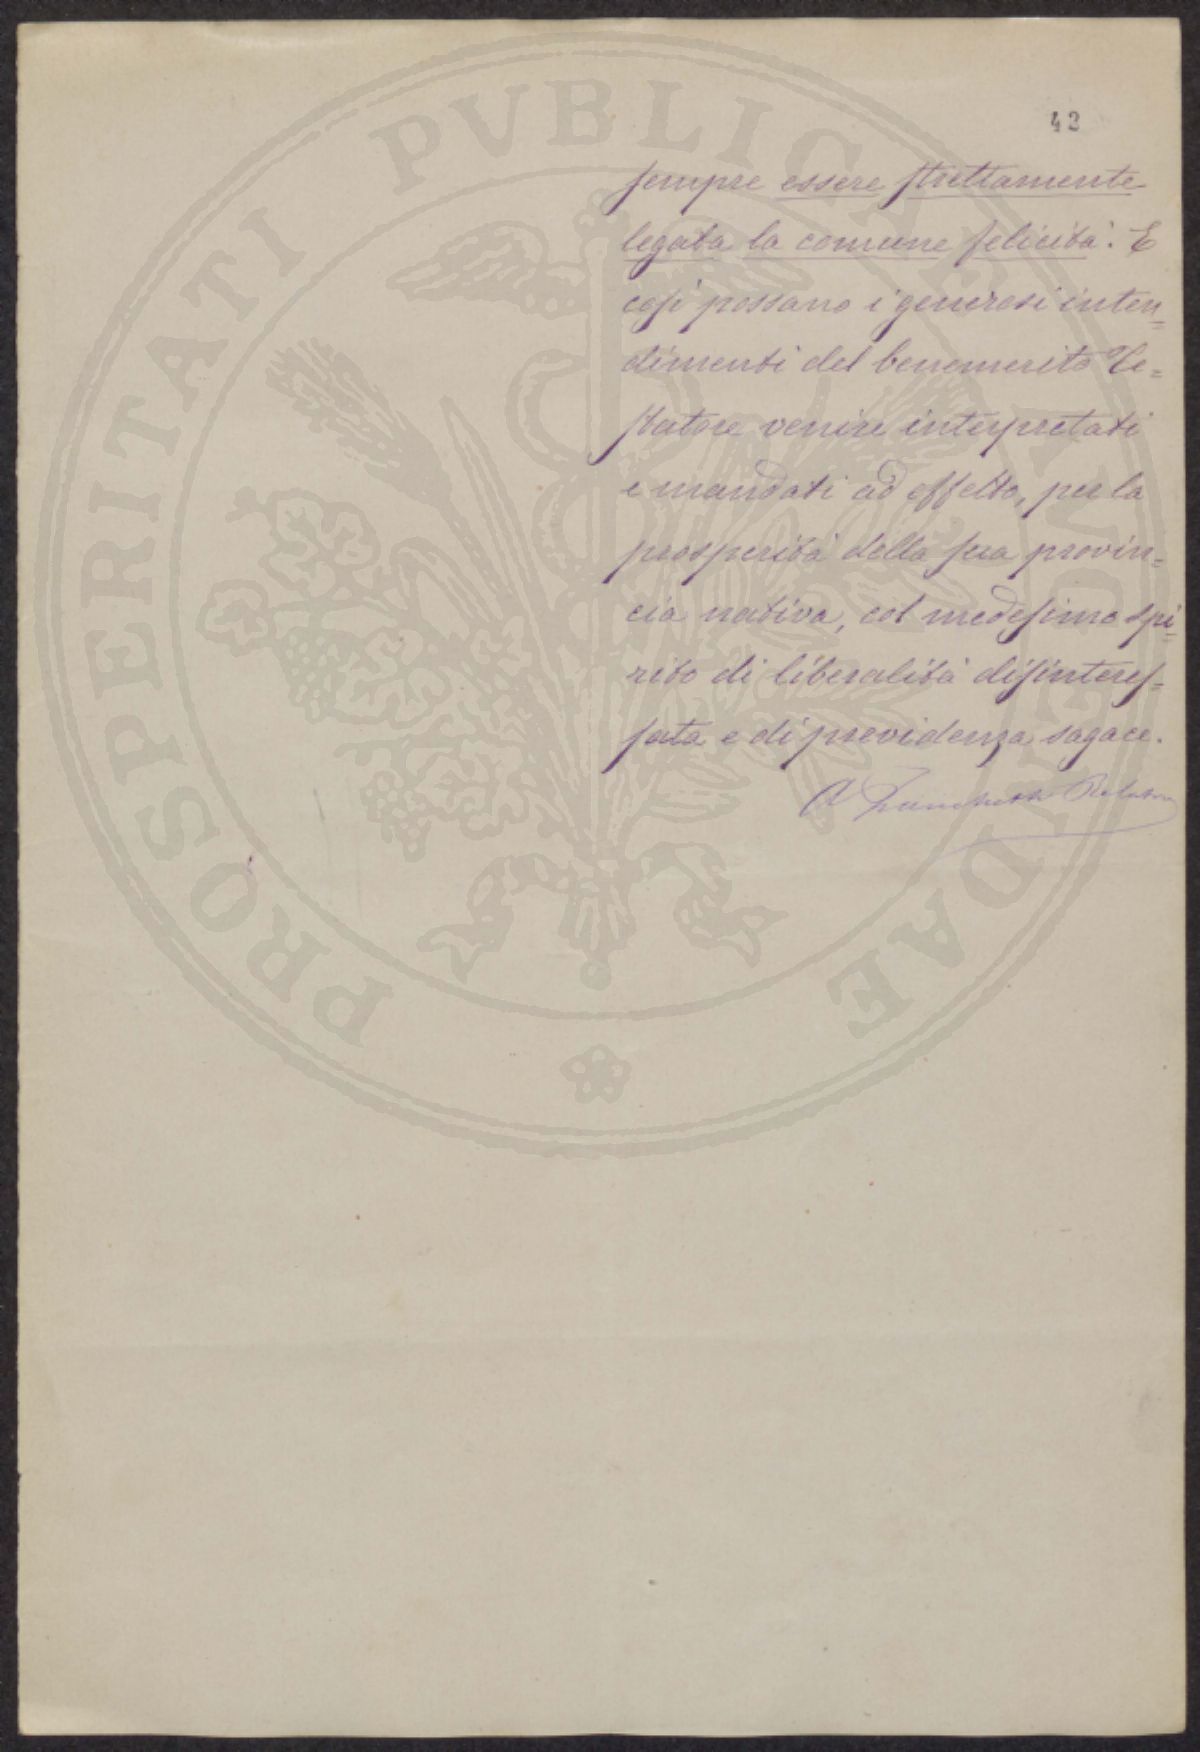 42
sempre essere strettamente
legata la comune felicità. E
così possano i generosi inten=
dimenti del benemerito Te=
statore venire interpretati
e mandati ad effetto, per la
prosperità della sua provin=
cia nativa, col medesimo spi=
rito di liberalità disinteres=
sata e di previdenza sagace.
Relatore
PROSPERITATI PVBLICAE AVGENDAE